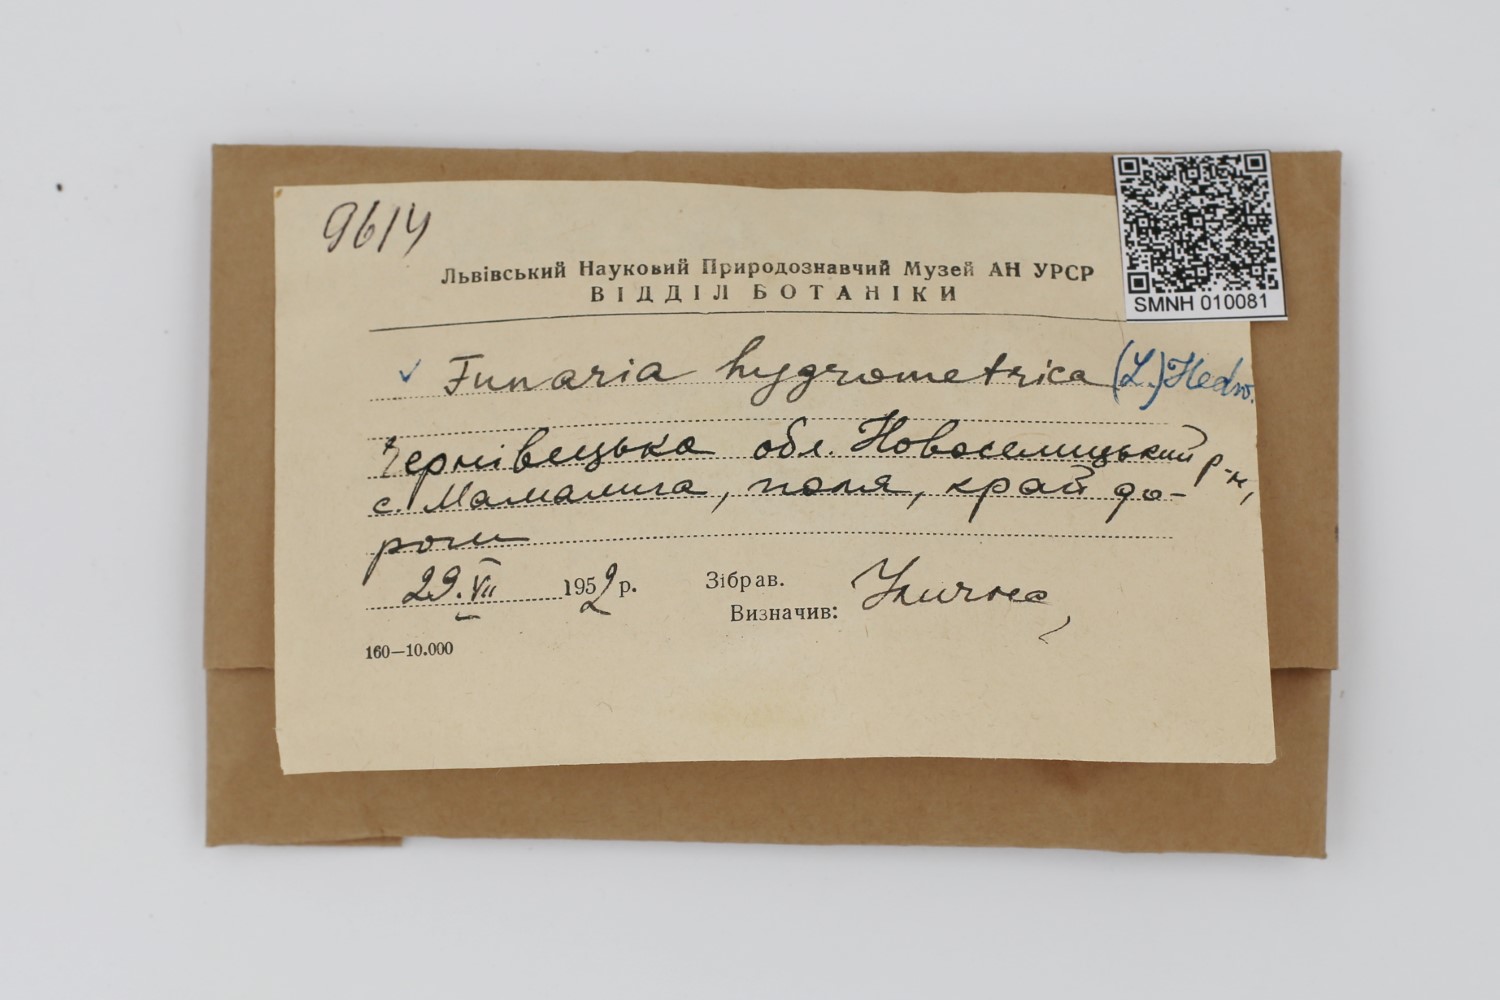 9614
Львівський Науковий Природознавчий Музей АН УРСР
ВІДДІЛ БОТАНІКИ
SMNH 010081
✓ Funaria hygrometrica (L.) Hedw.
Чернівецька обл. Новоселицький р-н,
с. Мамалига, поля, край до-
роги
29.VII 1952 р. Зібрав.
Визначив: Улична
160—10.000